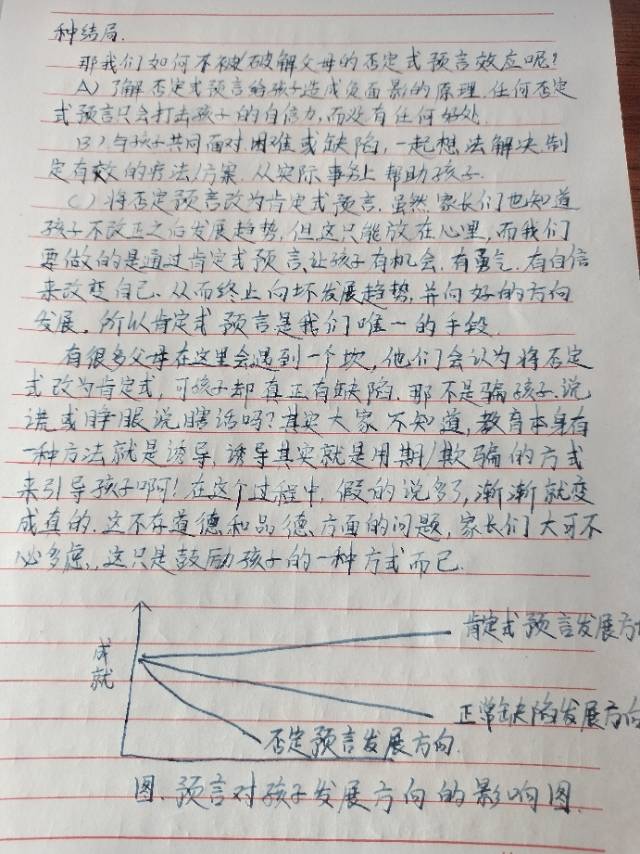 种结局.
那我们如何不被破解父母的否定式预言效应呢?
A) 了解否定式预言给孩子造成负面影的原理. 任何否定
式预言只会打击孩子的自信力,而没有任何好处.
B) 与孩子共同面对困难或缺陷,一起想法解决.制
定有效的疗法/方案. 从实际事务上帮助孩子.
C) 将否定预言改为肯定式预言. 虽然家长们也知道
孩子不改正之后发展趋势,但这只能放在心里,而我们
要做的是通过肯定式预言让孩子有机会.有勇气.有自信
来改变自己.从而终止向坏发展趋势,并向好的方向
发展. 所以肯定式预言是我们唯一的手段.
有很多父母在这里会遇到一个坎,他们会认为将否定
式改为肯定式,可孩子却真正有缺陷.那不是骗孩子.说
谎或睁眼说瞎话吗?其实大家不知道,教育本身有
一种方法就是诱导,诱导其实就是用期/欺骗的方式
来引导孩子啊!在这个过程中,假的说多了,渐渐就变
成真的.这不存道德和品德方面的问题,家长们大可不
必多虑,这只是鼓励孩子的一种方式而已.
肯定式预言发展方
成就
正常缺陷发展方向
否定预言发展方向.
图.预言对孩子发展方向的影响图.